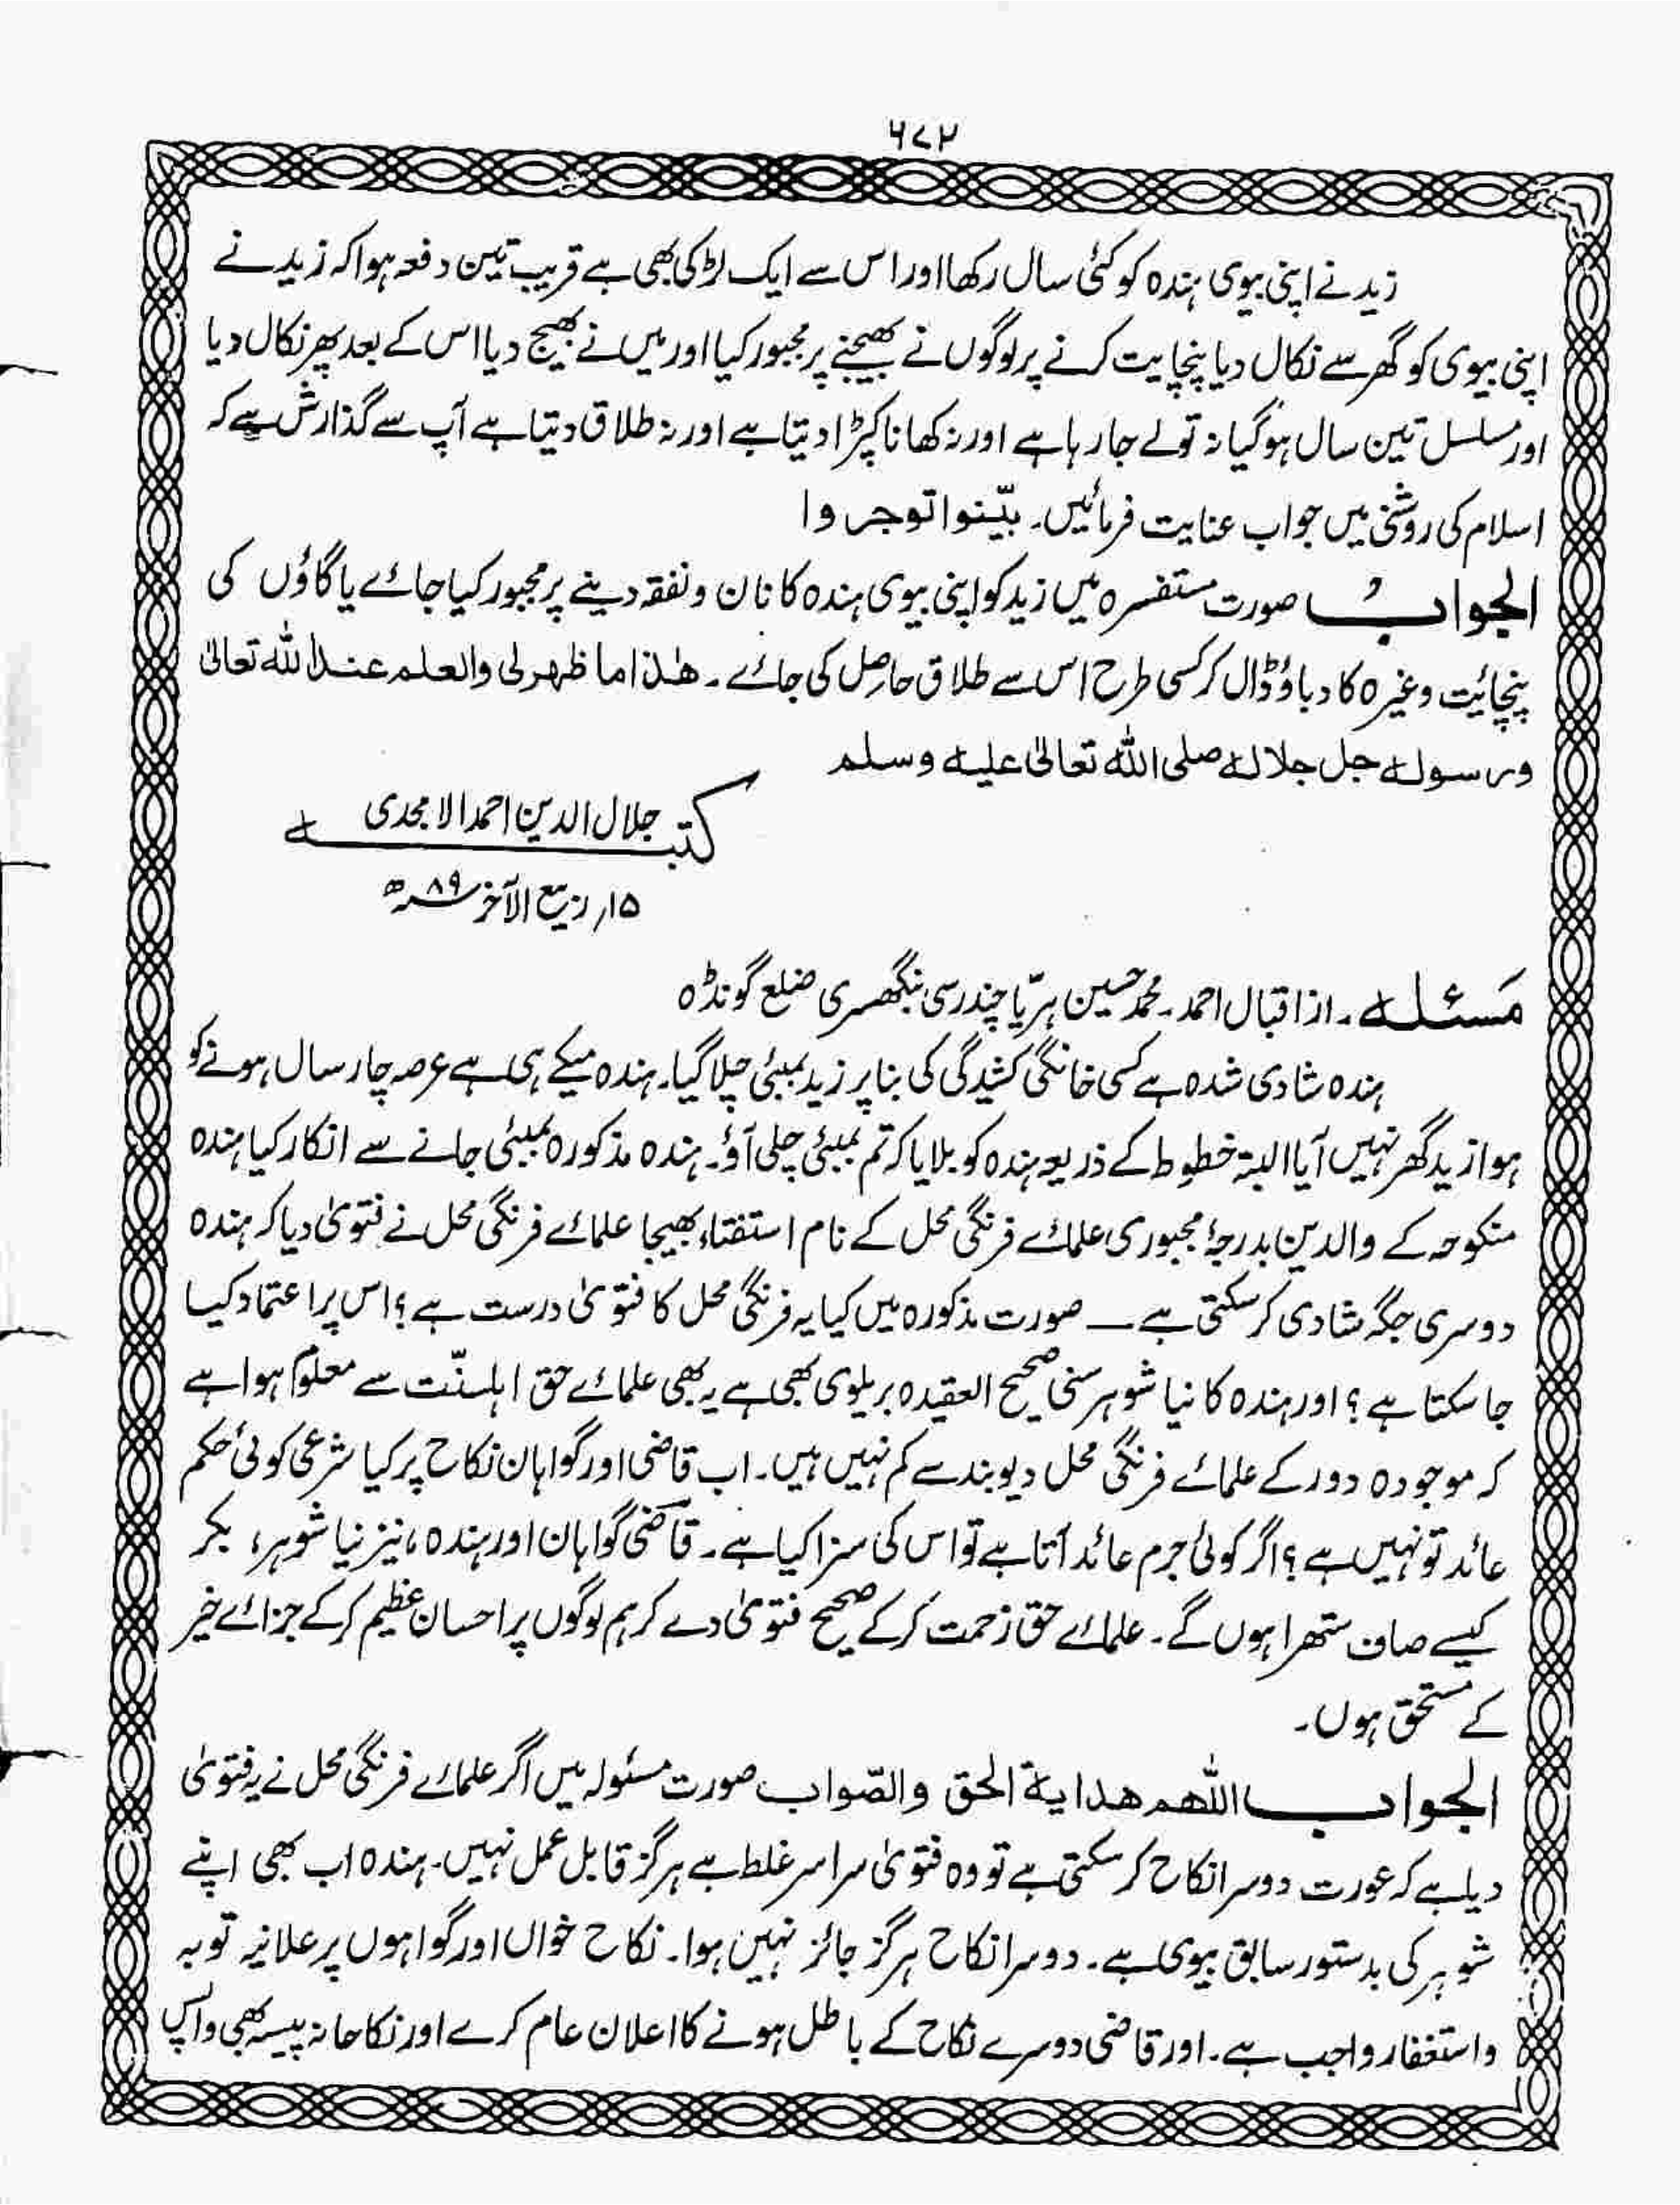 ۶۷۲
زید نے اپنی بیوی ہندہ کو کئی سال رکھا اور اس سے ایک لڑکی بھی ہے قریب تین دفعہ ہوا کہ زید نے
اپنی بیوی کو گھر سے نکال دیا پنچایت کرنے پر لوگوں نے بھیجنے پر مجبور کیا اور میں نے بھیج دیا اس کے بعد پھر نکال دیا
اور مسلسل تین سال ہو گیا نہ تو لے جا رہا ہے اور نہ کھانا کپڑا دیتا ہے اور نہ طلاق دیتا ہے آپ سے گذارش ہے کہ
اسلام کی روشنی میں جواب عنایت فرمائیں۔ بیّنوا توجروا
الجوابُ صورت مستفسرہ میں زید کو اپنی بیوی ہندہ کا نان و نفقہ دینے پر مجبور کیا جائے یا گاؤں کی
پنچائیت وغیرہ کا دباؤ ڈال کر کسی طرح اس سے طلاق حاصل کی جائے۔ ھٰذا ما ظھر لی والعلم عند اللہ تعالیٰ
ورسولہ جل جلالہ صلی اللہ تعالیٰ علیہ وسلم
کتبہ جلال الدین احمد الامجدی
۱۵؍ ربیع الآخر سنہ ۸۹ھ
مَسئلہ۔ از اقبال احمد۔ محمد حسین ہریّا چندرسی بنگھسری ضلع گونڈہ
ہندہ شادی شدہ ہے کسی خانگی کشیدگی کی بنا پر زید بمبئی چلا گیا۔ ہندہ میکے ہی ہے عرصہ چار سال ہونے کو
ہوا زید گھر نہیں آیا البتہ خطوط کے ذریعہ ہندہ کو بلایا کہ تم بمبئی چلی آؤ۔ ہندہ مذکورہ بمبئی جانے سے انکار کیا ہندہ
منکوحہ کے والدین بدرجۂ مجبوری علمائے فرنگی محل کے نام استفتاء بھیجا علمائے فرنگی محل نے فتویٰ دیا کہ ہندہ
دوسری جگہ شادی کر سکتی ہے ــــ صورت مذکورہ میں کیا یہ فرنگی محل کا فتویٰ درست ہے؟ اس پر اعتماد کیا
جا سکتا ہے؟ اور ہندہ کا نیا شوہر سنی صحیح العقیدہ بریلوی بھی ہے یہ بھی علمائے حق اہلسنّت سے معلوم ہوا ہے
کہ موجودہ دور کے علمائے فرنگی محل دیوبند سے کم نہیں ہیں۔ اب قاضی اور گواہان نکاح پر کیا شرعی کوئی حکم
عائد تو نہیں ہے؟ اگر کوئی جرم عائد آتا ہے تو اس کی سزا کیا ہے۔ قاضی گواہان اور ہندہ، نیز نیا شوہر، بکر
کیسے صاف ستھرا ہوں گے۔ علمائے حق زحمت کر کے صحیح فتویٰ دے کر ہم لوگوں پر احسان عظیم کر کے جزائے خیر
کے مستحق ہوں۔
الجواب اللٰھم ھدایۃ الحق والصّواب صورت مسئولہ میں اگر علمائے فرنگی محل نے یہ فتویٰ
دیا ہے کہ عورت دوسرا نکاح کر سکتی ہے تو وہ فتویٰ سراسر غلط ہے ہرگز قابل عمل نہیں۔ ہندہ اب بھی اپنے
شوہر کی بدستور سابق بیوی ہے۔ دوسرا نکاح ہرگز جائز نہیں ہوا۔ نکاح خواں اور گواہوں پر علانیہ توبہ
واستغفار واجب ہے۔ اور قاضی دوسرے نکاح کے باطل ہونے کا اعلان عام کرے اور نکاحانہ پیسہ بھی واپس